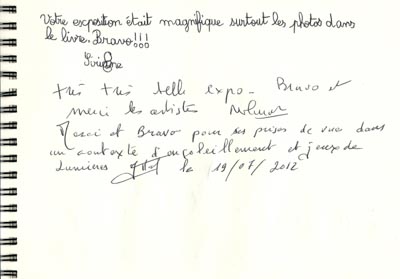 Votre exposition était magnifique surtout les photos dans
le livre. Bravo!!!
très très belle expo - Bravo et
merci les artistes
Merci et Bravo pour ses prises de vues dans
un contexte d'ensoleillement et jeux de
Lumières le 19/07/2012